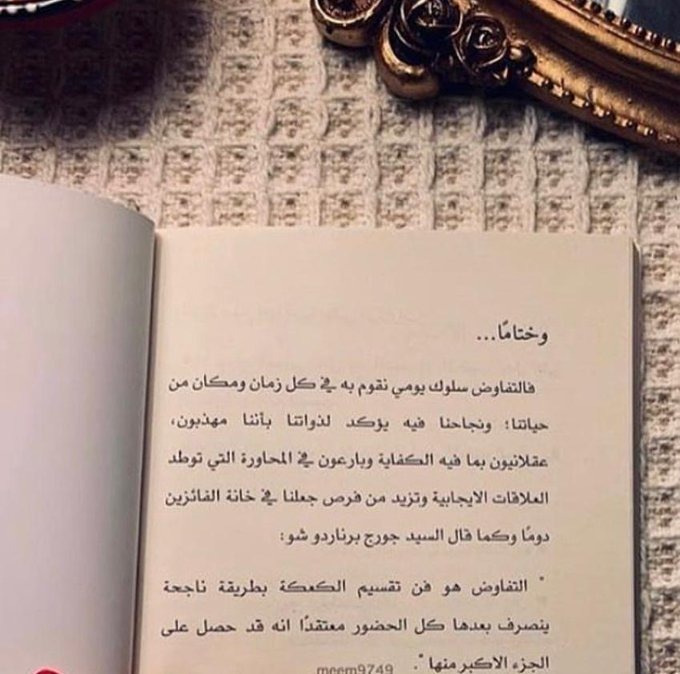 وختامًا...
فالتفاوض سلوك يومي نقوم به في كل زمان ومكان من
حياتنا؛ ونجاحنا فيه يؤكد لذواتنا بأننا مهذبون،
عقلانيون بما فيه الكفاية وبارعون في المحاورة التي توطد
العلاقات الايجابية وتزيد من فرص جعلنا في خانة الفائزين
دومًا وكما قال السيد جورج برناردو شو:
" التفاوض هو فن تقسيم الكعكة بطريقة ناجحة
ينصرف بعدها كل الحضور معتقدًا انه قد حصل على
الجزء الاكبر منها ".
meem9749